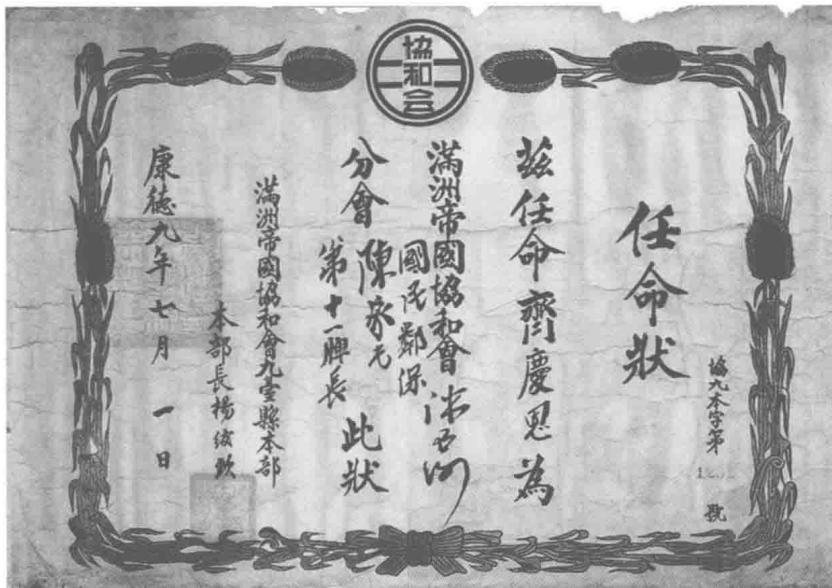 協和会
協九本字第 號
任命狀
茲任命 齊慶恩 為
滿洲帝國協和會 沐石河
國民鄰保
分會 陳家屯
第十一牌長 此狀
滿洲帝國協和會九臺縣本部
本部長楊
康德九年七月一日